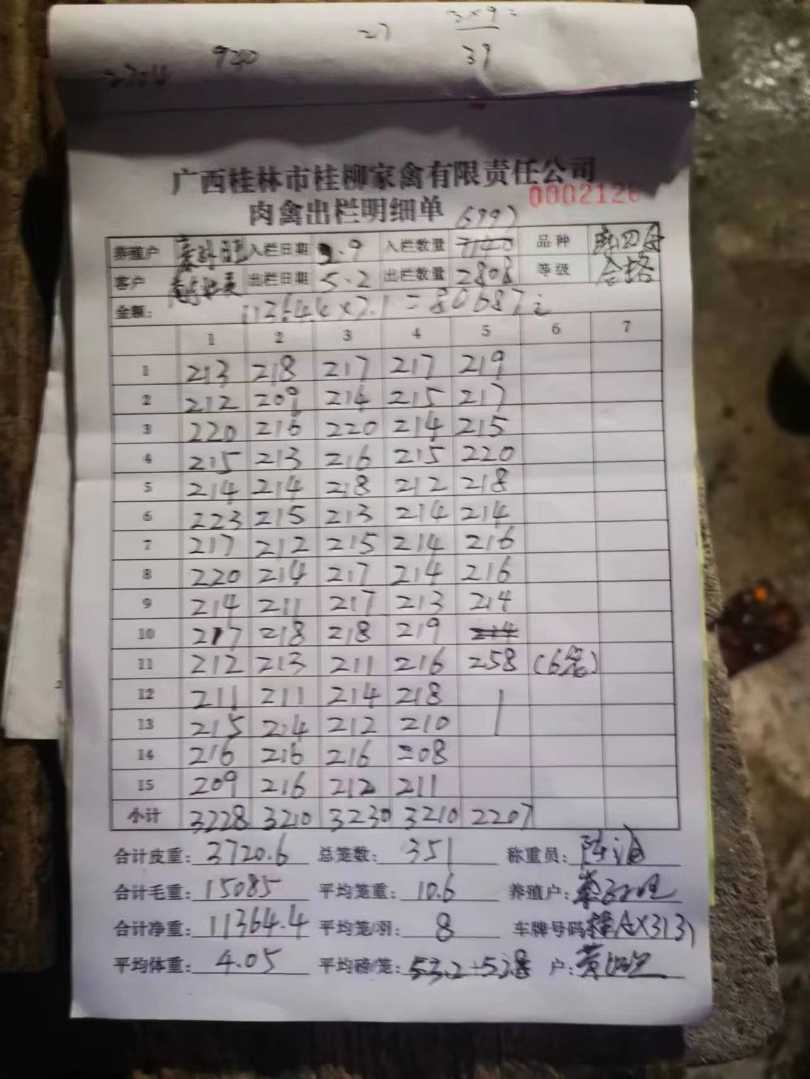 3×9=
27
39
940
广西桂林市桂柳家禽有限责任公司
0002126
肉禽出栏明细单
6997
养殖户 入栏日期 3.9 入栏数量 7140 品种
客户 出栏日期 5.2 出栏数量 2808 等级 合格
金额: 11364.4×7.1=80687
1 2 3 4 5 6 7
1 213 218 217 217 219
2 212 209 214 215 217
3 220 216 220 214 215
4 215 213 216 215 220
5 214 214 218 212 218
6 223 215 213 214 214
7 217 212 215 214 216
8 220 214 217 214 216
9 214 211 217 213 214
10 217 218 218 219 214
11 212 213 211 216 258 (6笼)
12 211 211 214 218
13 215 214 212 210
14 216 216 216 208
15 209 216 212 211
小计 3228 3210 3230 3210 2207
合计皮重: 3720.6 总笼数: 351 称重员: 陈
合计毛重: 15085 平均笼重: 10.6 养殖户:
合计净重: 11364.4 平均笼/羽: 8 车牌号码 桂AX313
平均体重: 4.05 平均磅/笼: 53.2-52.8 户: 黄